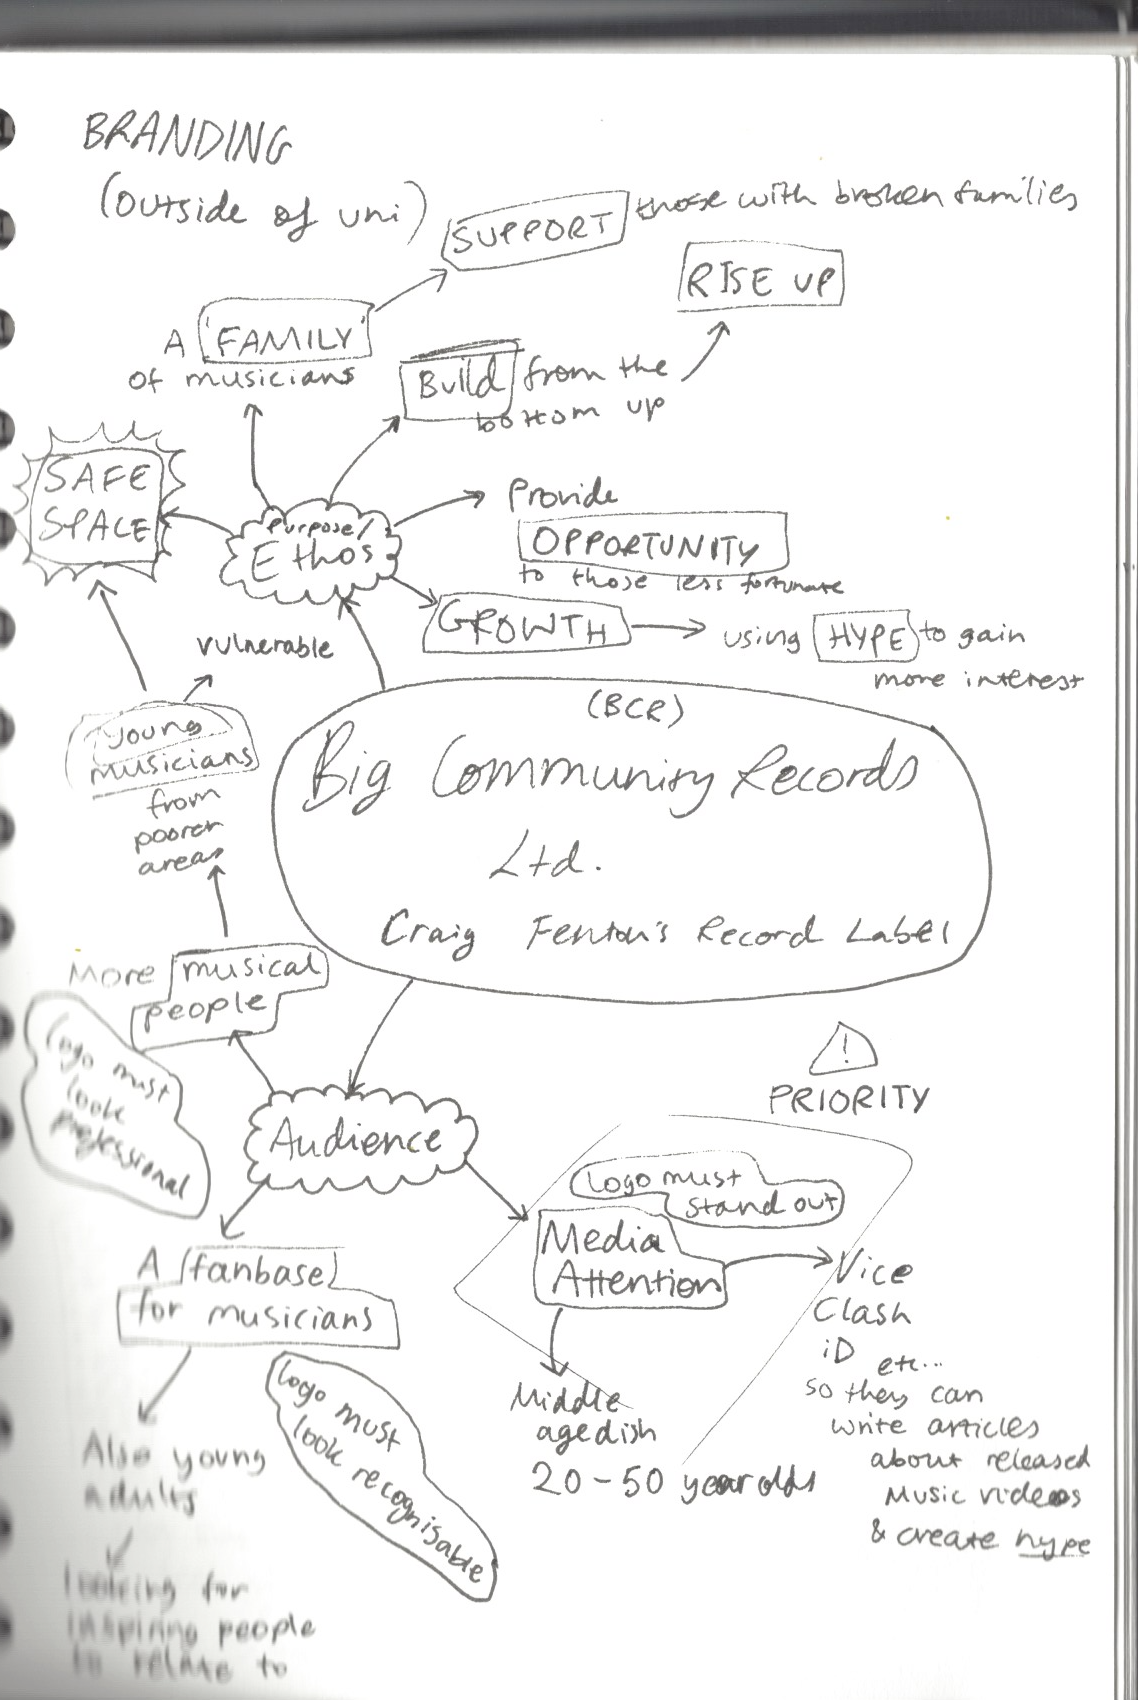 BRANDING
(outside of uni)
SUPPORT those with broken families
RISE UP
A 'FAMILY'
of musicians
Build from the
bottom up
SAFE
SPACE
Purpose/
Ethos
Provide
OPPORTUNITY
to those less fortunate
GROWTH
using HYPE to gain
more interest
vulnerable
young
musicians
from
poorer
areas
(BCR)
Big Community Records
Ltd.
Craig Fenton's Record Label
More musical
people
logo must
look
professional
Audience
!
PRIORITY
logo must
stand out
Media
Attention
Vice
Clash
iD
etc...
so they can
write articles
about released
Music videos
& create hype
Middle
agedish
20-50 year olds
A fanbase
for musicians
logo must
look recognisable
Also young
adults
looking for
inspiring people
to relate to